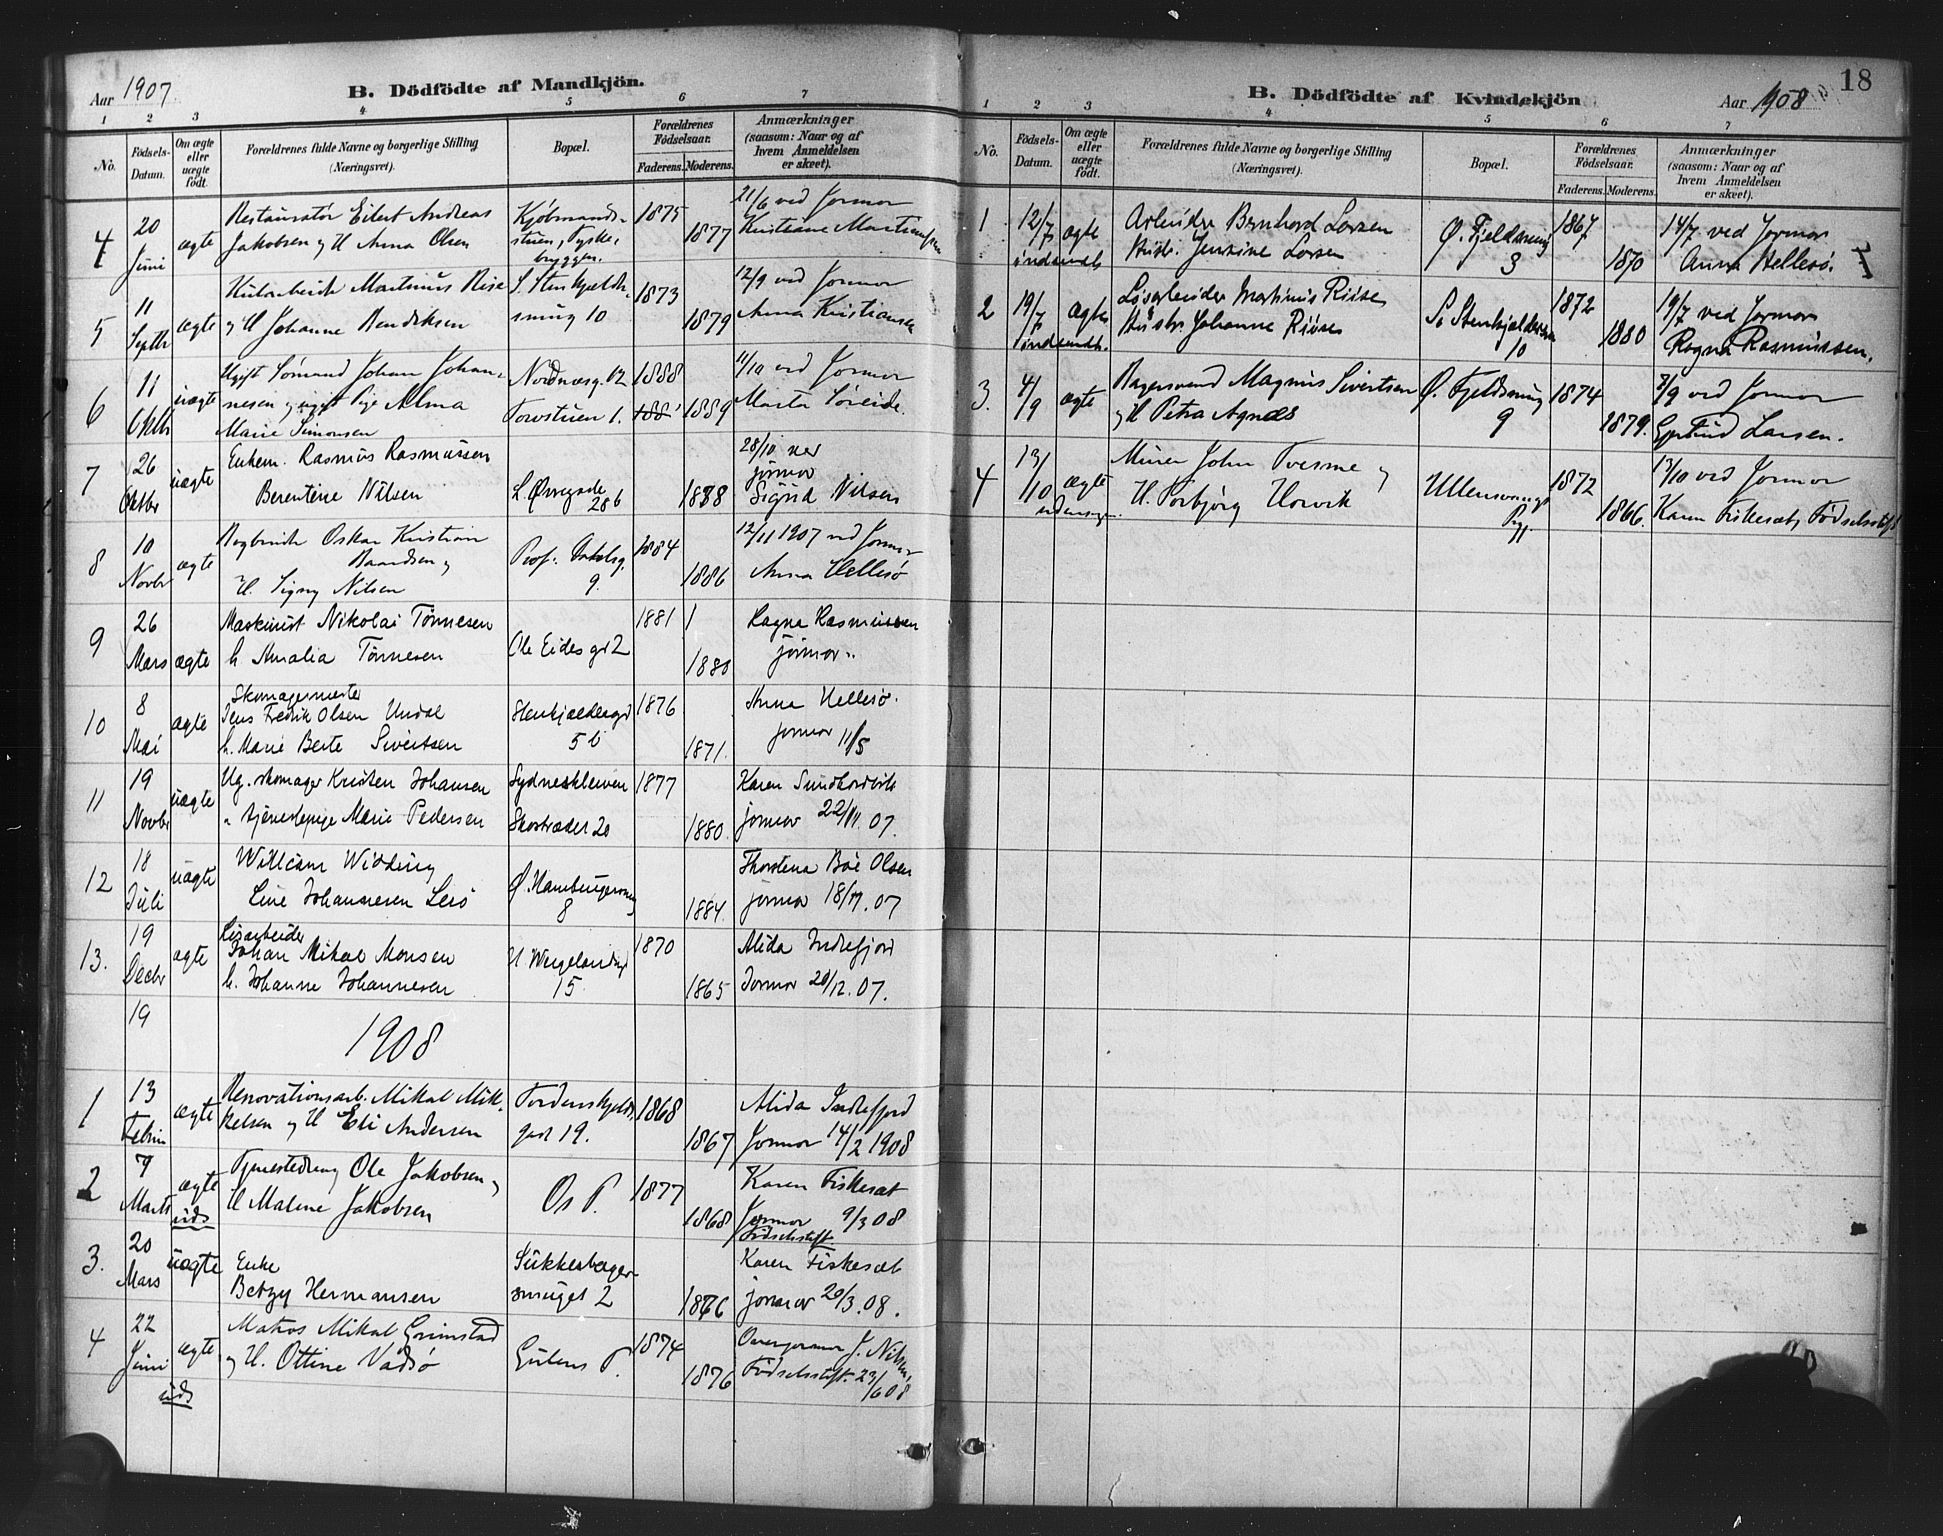 Aar 1907
B. Dödfödte af Mandkjön.
1 2 3 4 5 6 7
No.
Födsels-Datum.
Om ægte eller uægte födt.
Forældrenes fulde Navne og borgerlige Stilling
(Næringsvei).
Bopæl.
Forældrenes Födselsaar.
Faderens. Moderens.
Anmærkninger
(saasom: Naar og af hvem Anmeldelsen er skeet).
4 20 Juni ægte
Restauratør Eilert Andreas
Jakobsen og H Anna Olsen
Kjøbmands-
stuen, Tyske-
bryggen.
1875 1877
21/6 ved Jormor
Kristiane
5 11 Septbr ægte
Martinus Riise
og H Johanne Hendriksen
S. Stenkjelder-
smug 10
1873 1879
12/9 ved Jormor
Anna Kristiansen
6 11 Oktbr uægte
Ugift Sømand Johan Johan-
nesen og ugift Pige Alma
Marie Simonsen
Nordnæsg. 12
Torvstuen 1.
1888 1889
11/10 ved Jormor
Marta Søreide.
7 26 Oktbr uægte
Enkem. Rasmus Rasmussen
Berentine Nilsen
L. Øvregade
28 b
1888
28/10 ved
Jormor
Sigrid Nilsen
8 10 Novbr ægte
Oskar Kristian
Baardsen og
H. Signy Nilsen
Prof. Dahlsg.
9.
1884 1886
12/11 1907 ved Jormor
Anna Hellesø
9 26 Mars ægte
Maskinist Nikolai Tönnesen
h. Amalia Tönnesen
Ole Eides gd 2
1881 1880
Ragna Rasmussen
jormor
10 8 Mai ægte
Skomagermester
Jens Fedrik Olsen Undal
h. Marie Berte Sivertsen
Stenkjeldergd
5 b
1876 1871.
Anna Hellesø.
jormor 11/5
11 19 Novbr uægte
Ug. skomager Kristen Johansen
" tjenestepige Marie Pedersen
Sydneskleiven
Skostredet 20
1877 1880.
Karen Sundhordvik
jormor 22/11. 07.
12 18 Juli uægte
William Widding
Line Johannesen Lerö
Ø. Hamburgersmug
8
1884.
Thorstena Böe Olsen
jormor 18/7. 07
13. 19 Decbr ægte
Lösarbeider
Johan Mikal Monsen
h. Johanne Johannesen
H Wergelandsgd
15.
1870 1865
Alida Indrefjord
Jormor 20/12. 07.
19
1908
1 13 Febru ægte
Renovationsarb. Mikal Mik-
kelsen og H Eli Andersen
Tordenskjolds
gad 19.
1868 1867
Alida Indrefjord
Jormor 14/2 1908
2 7 Marts ægte uds
Tjenestedreng Ole Jakobsen og
H Malene Jakobsen
Os P.
1877 1868
Karen Fiskesæt
Jormor 9/3 08
Födselsstift.
3. 20 Mars uægte
Enke
Betzy Hermansen
Sukkerbager-
smuget 2
1876
Karen Fiskesæt
jormor 20/3. 08.
4 22 Juni ægte uds
Matros Mikal Grimstad
og H. Ottine Vadsø
Gulens P.
1874 1876
Overjormor J. Nilsen,
Födselsstift. 23/6 08
18
B. Dödfödte af Kvindekjön
Aar 1908
1 2 3 4 5 6 7
No.
Födsels-Datum.
Om ægte eller uægte födt.
Forældrenes fulde Navne og borgerlige Stilling
(Næringsvei).
Bopæl.
Forældrenes Födselsaar.
Faderens. Moderens.
Anmærkninger
(saasom: Naar og af hvem Anmeldelsen er skeet).
1 12/7 ægte indenbds
Arbeider Bernhard Larsen
Hustr. Jensine Larsen
Ø. Fjeldsmug
3
1867 1870
14/7 ved Jormor
Anna Hellesö.
2 19/7 ægte
Lösarbeider Martinus Riise
Hustr. Johanne Riise
Sö Stenkjeldersm
10
1872 1880
19/7 ved Jormor
Ragna Rasmussen.
3. 4/9 ægte
Bagersvend Magnus Sivertsen
og H Petra Agnes
Ø. Fjeldsmug
9
1874 1879.
7/9 ved Jormor
Gjertrud Larsen.
4 13/10 ægte
Murer John Tvesme og
H. Torbjörg Horvik
Ullensvang
Prgj.
1872 1866.
13/10 ved Jormor
Karen Fiskesæt, Födselsstift